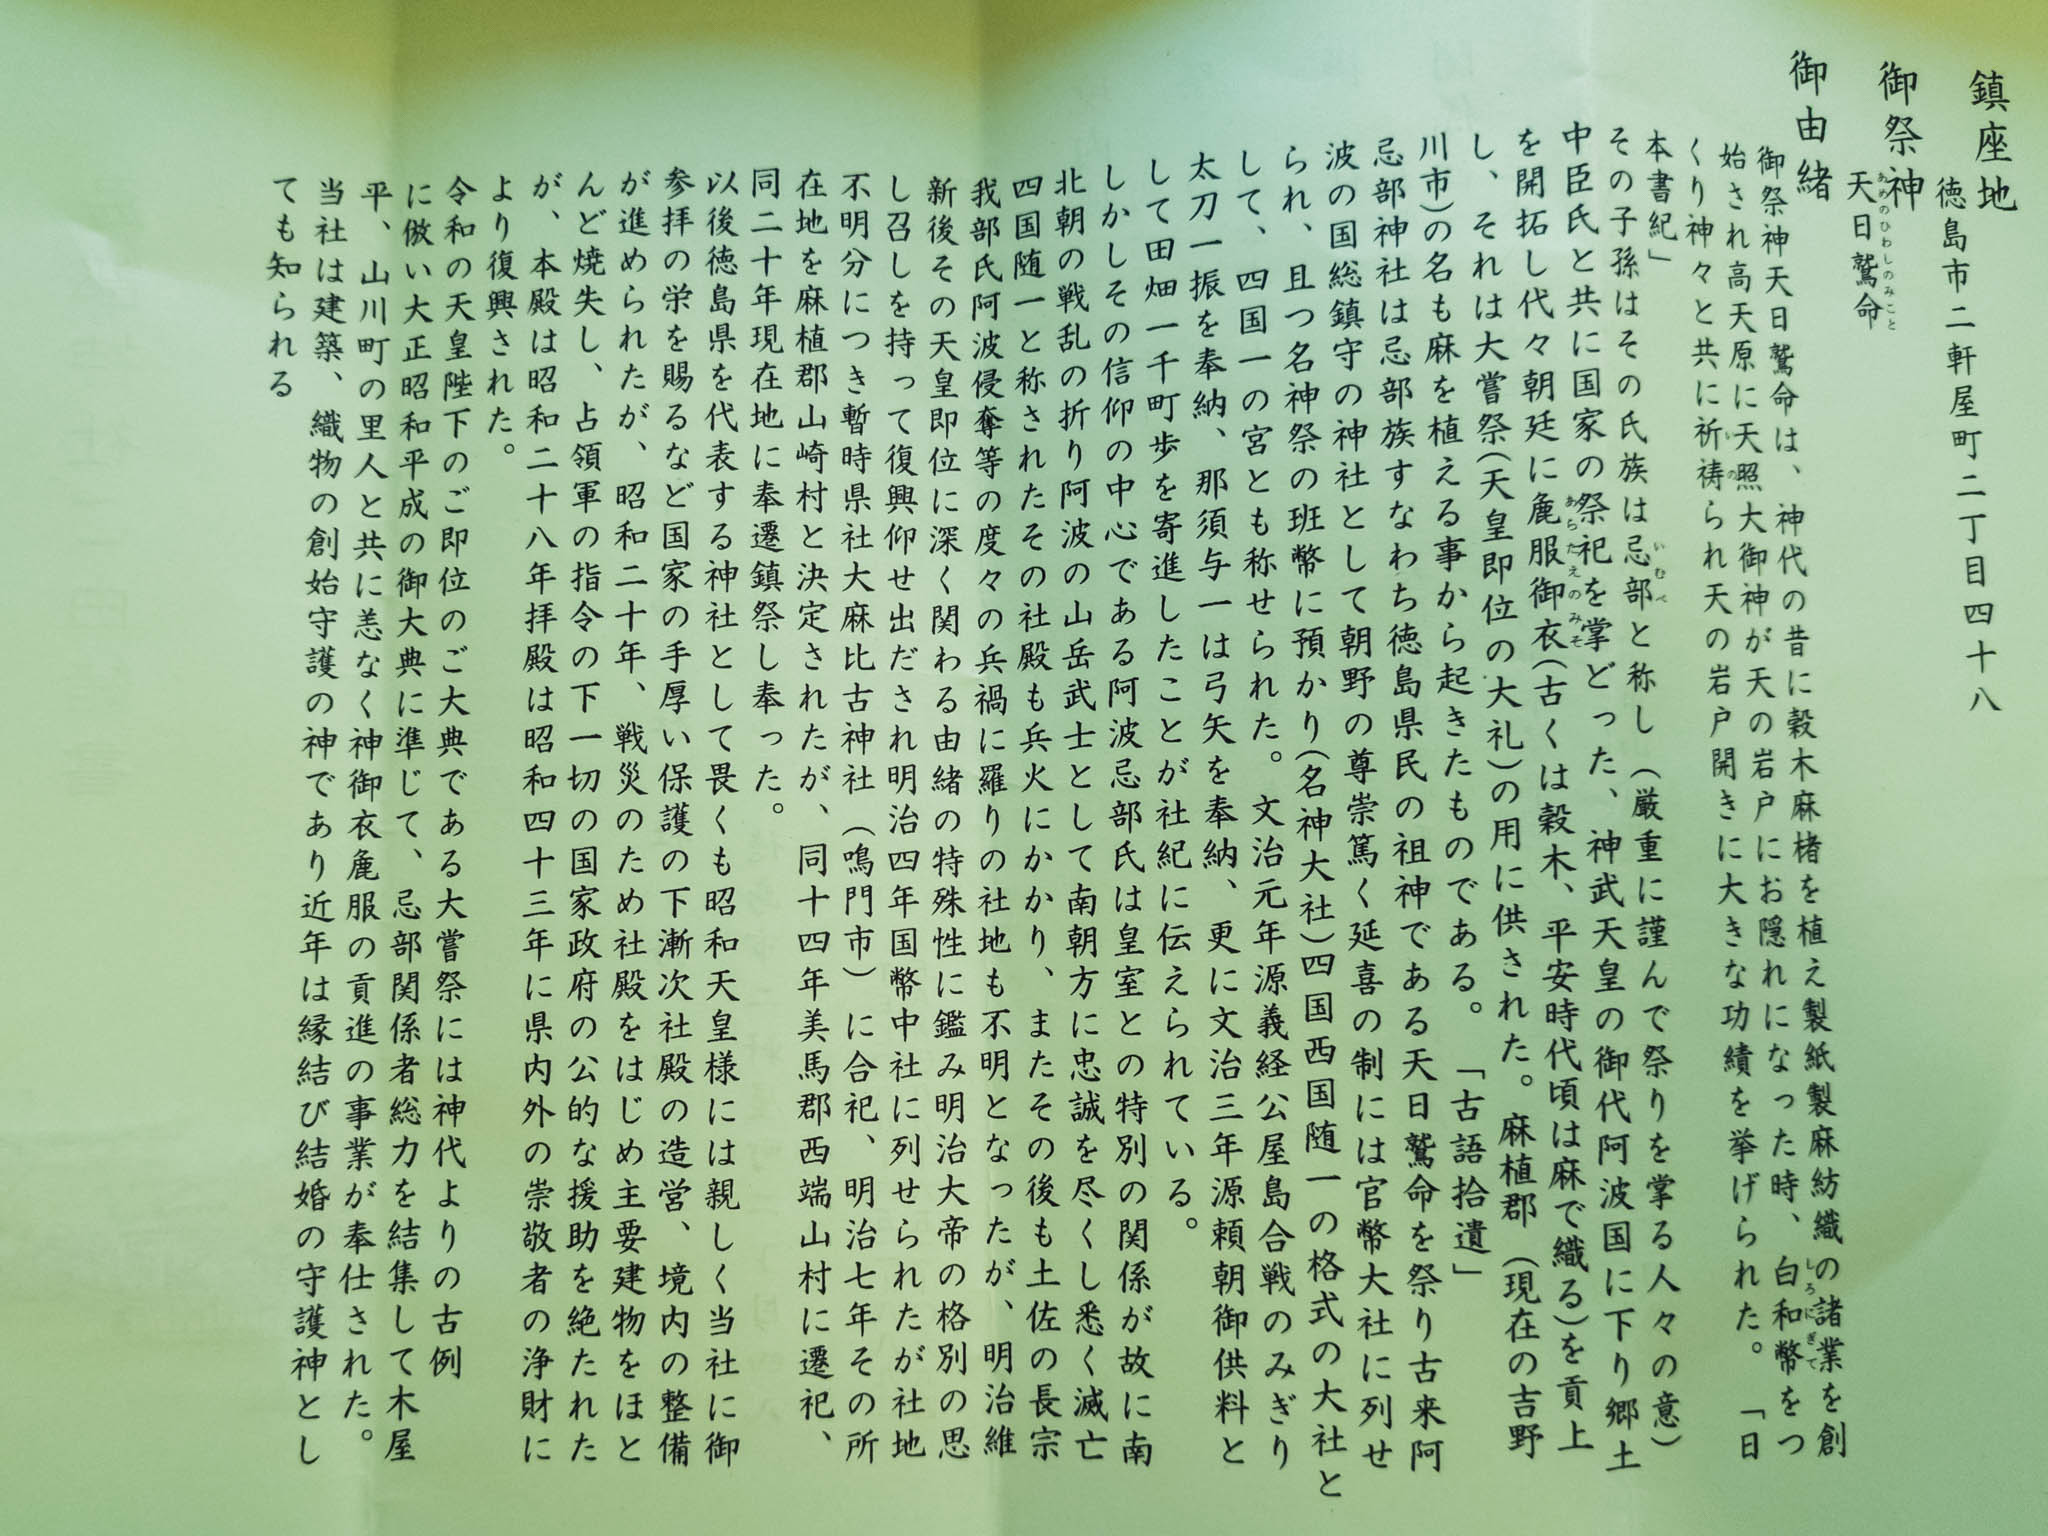 鎮座地
徳島市二軒屋町二丁目四十八
御祭神
天日鷲命
あめのひわしのみこと
御由緒
御祭神天日鷲命は、神代の昔に穀木麻楮を植え製紙製麻紡織の諸業を創
始され高天原に天照大御神が天の岩戸にお隠れになった時、白和幣をつ
しろにぎて
くり神々と共に祈祷られ天の岩戸開きに大きな功績を挙げられた。「日
いの
本書紀」
その子孫はその氏族は忌部と称し（厳重に謹んで祭りを掌る人々の意）
いむべ
中臣氏と共に国家の祭祀を掌どった、神武天皇の御代阿波国に下り郷土
を開拓し代々朝廷に麁服御衣（古くは穀木、平安時代頃は麻で織る）を貢上
あらたえのみそ
し、それは大嘗祭（天皇即位の大礼）の用に供された。麻植郡（現在の吉野
川市）の名も麻を植える事から起きたものである。「古語拾遺」
忌部神社は忌部族すなわち徳島県民の祖神である天日鷲命を祭り古来阿
波の国総鎮守の神社として朝野の尊崇篤く延喜の制には官幣大社に列せ
られ、且つ名神祭の班幣に預かり（名神大社）四国西国随一の格式の大社と
して、四国一の宮とも称せられた。文治元年源義経公屋島合戦のみぎり
太刀一振を奉納、那須与一は弓矢を奉納、更に文治三年源頼朝御供料と
して田畑一千町歩を寄進したことが社紀に伝えられている。
しかしその信仰の中心である阿波忌部氏は皇室との特別の関係が故に南
北朝の戦乱の折り阿波の山岳武士として南朝方に忠誠を尽くし悉く滅亡
四国随一と称されたその社殿も兵火にかかり、またその後も土佐の長宗
我部氏阿波侵奪等の度々の兵禍に羅りの社地も不明となったが、明治維
新後その天皇即位に深く関わる由緒の特殊性に鑑み明治大帝の格別の思
し召しを持って復興仰せ出だされ明治四年国幣中社に列せられたが社地
不明分につき暫時県社大麻比古神社（鳴門市）に合祀、明治七年その所
在地を麻植郡山崎村と決定されたが、同十四年美馬郡西端山村に遷祀、
同二十年現在地に奉遷鎮祭し奉った。
以後徳島県を代表する神社として畏くも昭和天皇様には親しく当社に御
参拝の栄を賜るなど国家の手厚い保護の下漸次社殿の造営、境内の整備
が進められたが、昭和二十年、戦災のため社殿をはじめ主要建物をほと
んど焼失し、占領軍の指令の下一切の国家政府の公的な援助を絶たれた
が、本殿は昭和二十八年拝殿は昭和四十三年に県内外の崇敬者の浄財に
より復興された。
令和の天皇陛下のご即位のご大典である大嘗祭には神代よりの古例
に倣い大正昭和平成の御大典に準じて、忌部関係者総力を結集して木屋
平、山川町の里人と共に恙なく神御衣麁服の貢進の事業が奉仕された。
当社は建築、織物の創始守護の神であり近年は縁結び結婚の守護神とし
ても知られる